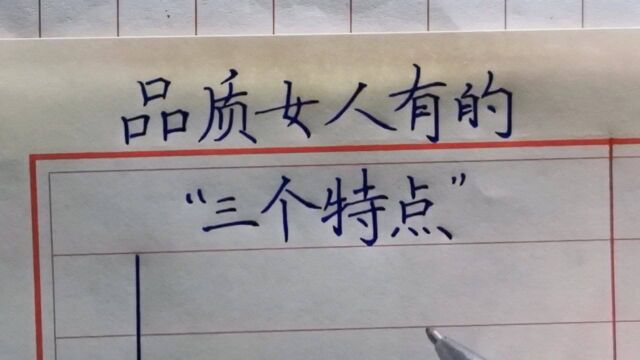 品质女人有的
“三个特点”